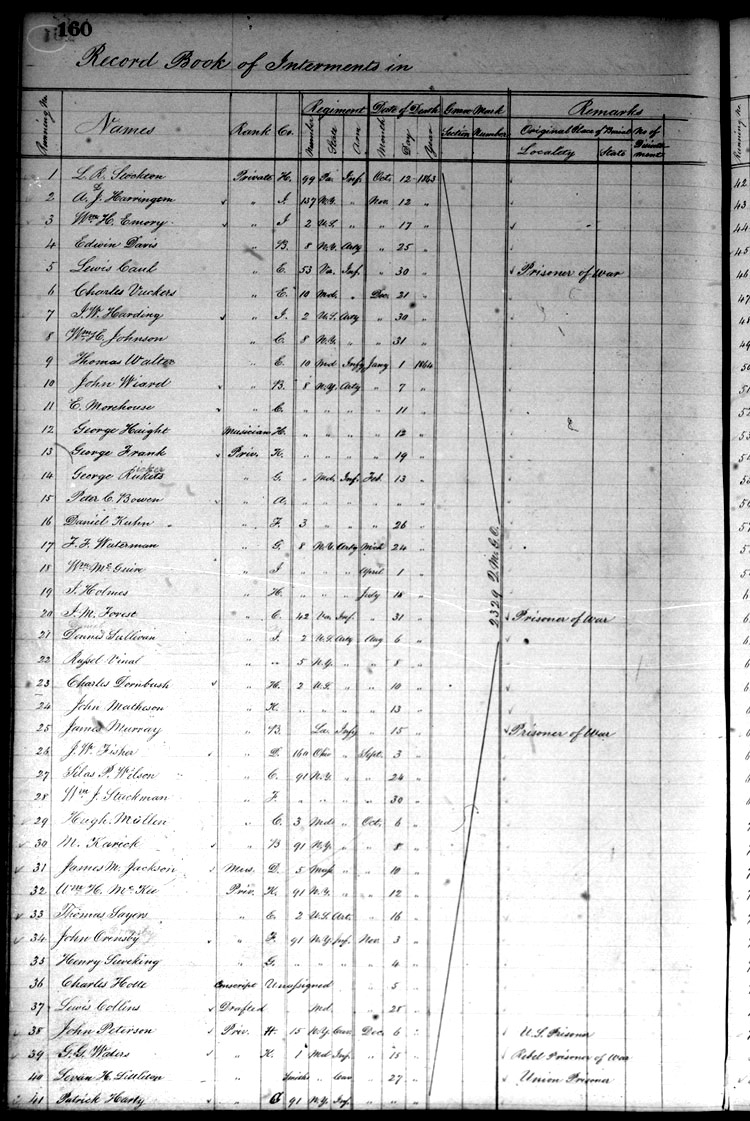 160
Record Book of Interments in
Running No. Names Rank Co. Regiment Date of Death Grave Mark Remarks
Number State Arm Month Day Year Section Number Original Place of Burial No of Disinterment
Locality State
1 L. R. Stockton Private H. 99 Pa. Inf. Oct. 12 1863
2 A. J. Harringem " I 137 N.Y. " Nov. 12 "
3 Wm H. Emory " I 2 U.S. " " 17 "
4 Edwin Davis " B. 8 N.Y. Arty " 25 "
5 Lewis Caul " E. 53 Va. Inf. " 30 " Prisoner of War
6 Charles Vickers " E. 10 Md. " Dec. 21 "
7 J. W. Harding " I. 2 U.S. Arty " 30 "
8 Wm H. Johnson " C. 8 N.Y. " " 31 "
9 Thomas Walter " E. 10 Md Infy Jany 1 1864
10 John Wiard " B. 8 N.Y. Arty " 7 "
11 E. Morehouse " C. " " " " 11 "
12 George Haight Musician H. " " " " 12 "
13 George Frank Priv. K. " " " " 19 "
14 George Rickets " G. " Md. Inf. Feb. 13 "
15 Peter C. Bowen " A. " " " " " "
16 Daniel Kuhn " F. 3 " " " 26 "
17 F. F. Waterman " G. 8 N.Y. Arty Mch 24 "
18 Wm McGuire " I " " " April 1 "
19 S. Holmes " H. " " " July 18 "
20 J. M. Forest " C. 42 Va. Inf. " 31 " Prisoner of War
21 Dennis Sullivan " I. 2 U.S. Arty Aug 6 "
22 Russel Vinal " " 5 N.Y. " " 8 "
23 Charles Dornbush " H. 2 U.S. " " 10 "
24 John Matheson " K. " " " " 13 "
25 James Murray " B. La. Infy " 15 " Prisoner of War
26 J. W. Fisher " D. 160 Ohio " Sept. 3 "
27 Silas P. Wilson " C. 91 N.Y. " " 24 "
28 Wm J. Stackman " F. " " " " 30 "
29 Hugh Mullen " C. 3 Md. " Oct. 6 "
30 M. Karick " B 91 N.Y. " " 8 "
31 James M. Jackson Mus. D. 5 Mass " " 10 "
32 Wm H. McKee Priv. K. 91 N.Y. " " 12 "
33 Thomas Sayers " E. 2 U.S. Art. " 16 "
34 John Ormsby " F. 91 N.Y. Inf. Nov. 3 "
35 Henry Sieveking " G. " " " " 4 "
36 Charles Holte Conscript Unassigned " 5 "
37 Lewis Collins Drafted Md. " 28 "
38 John Peterson Priv. H. 15 N.Y. Cav. Dec. 6 " U.S. Prisoner
39 G. G. Waters " K. 1 Md Inf. " 15 " Rebel Prisoner of War
40 Levin H. Littleton " Smiths " Cav " 27 " Union Prisoner
41 Patrick Harty " G 91 N.Y. Inf. " " "
2329 Q.M.G.O.
Running No.
42
43
44
45
46
47
48
49
50